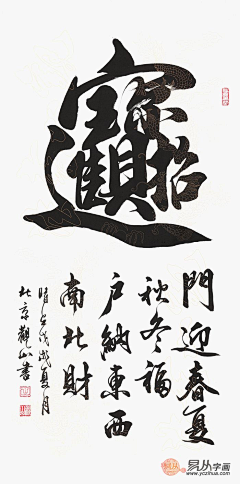 招財進寶
門迎春夏
秋冬福
户納東西
南北財
時在戊戌夏月
北京觀山書
易从字画